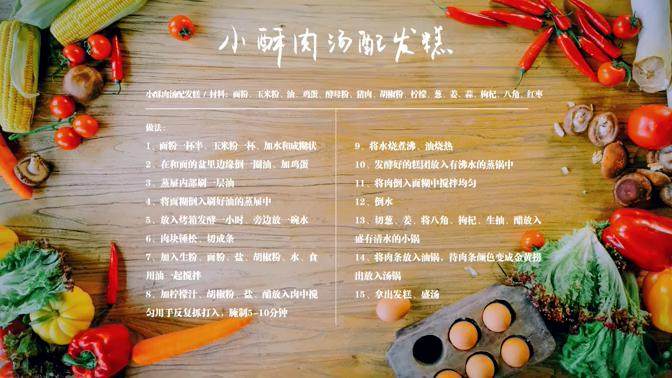 小酥肉汤配发糕
小酥肉汤配发糕 / 材料：面粉、玉米粉、油、鸡蛋、酵母粉、猪肉、胡椒粉、柠檬、葱、姜、蒜、枸杞、八角、红枣
做法：
1、面粉一杯半、玉米粉一杯、加水和成糊状
2、在和面的盆里边缘倒一圈油、加鸡蛋
3、蒸屉内部刷一层油
4、将面糊倒入刷好油的蒸屉中
5、放入烤箱发酵一小时、旁边放一碗水
6、肉块锤松、切成条
7、加入生粉、面粉、盐、胡椒粉、水、食
用油一起搅拌
8、加柠檬汁、胡椒粉、盐、醋放入肉中搅
匀用手反复抓打入，腌制5-10分钟
9、将水烧煮沸、油烧热
10、发酵好的糕团放入有沸水的蒸锅中
11、将肉倒入面糊中搅拌均匀
12、倒水
13、切葱、姜、将八角、枸杞、生抽、醋放入
盛有清水的小锅
14、将肉条放入油锅，待肉条颜色变成金黄捞
出放入汤锅
15、拿出发糕、盛汤